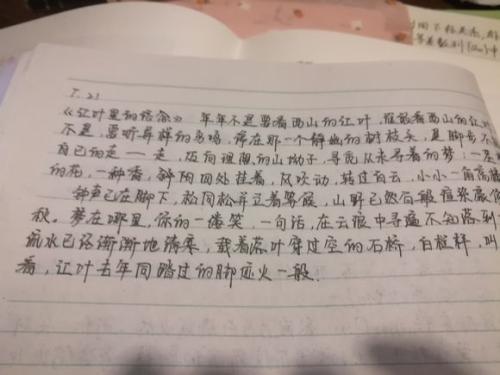 7.21
《红叶里的信念》 年年不是要看西山的红叶，谁能看西山的红
不是，要听异样的鸟鸣，停在那一个静幽的树枝头，是脚步不
自己的走一走，迈向祖限的山坳子，寻觅从未名着的梦，一
的花，一种香，斜阳四处挂着，风吹动，转过白云，小小一角高楼
钟声已在脚下，松同松并立着等候，山野已然百般渲染豪侈
秋。梦在哪里，你的一缕笑，一句话，在云浪中寻遍不知落到
流水已渐渐地清寒，载着落叶穿过空的石桥，白栏杆，叫
着，红叶去年同踏过的脚迹火一般。